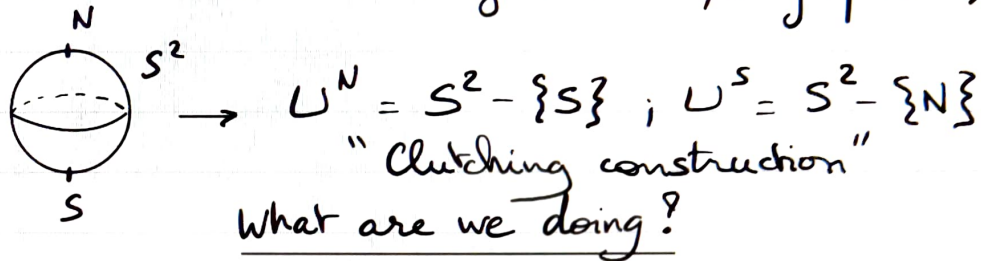 N
S² → Uᴺ = S² - {S} ; Uˢ = S² - {N}
"Clutching construction"
S
What are we doing?